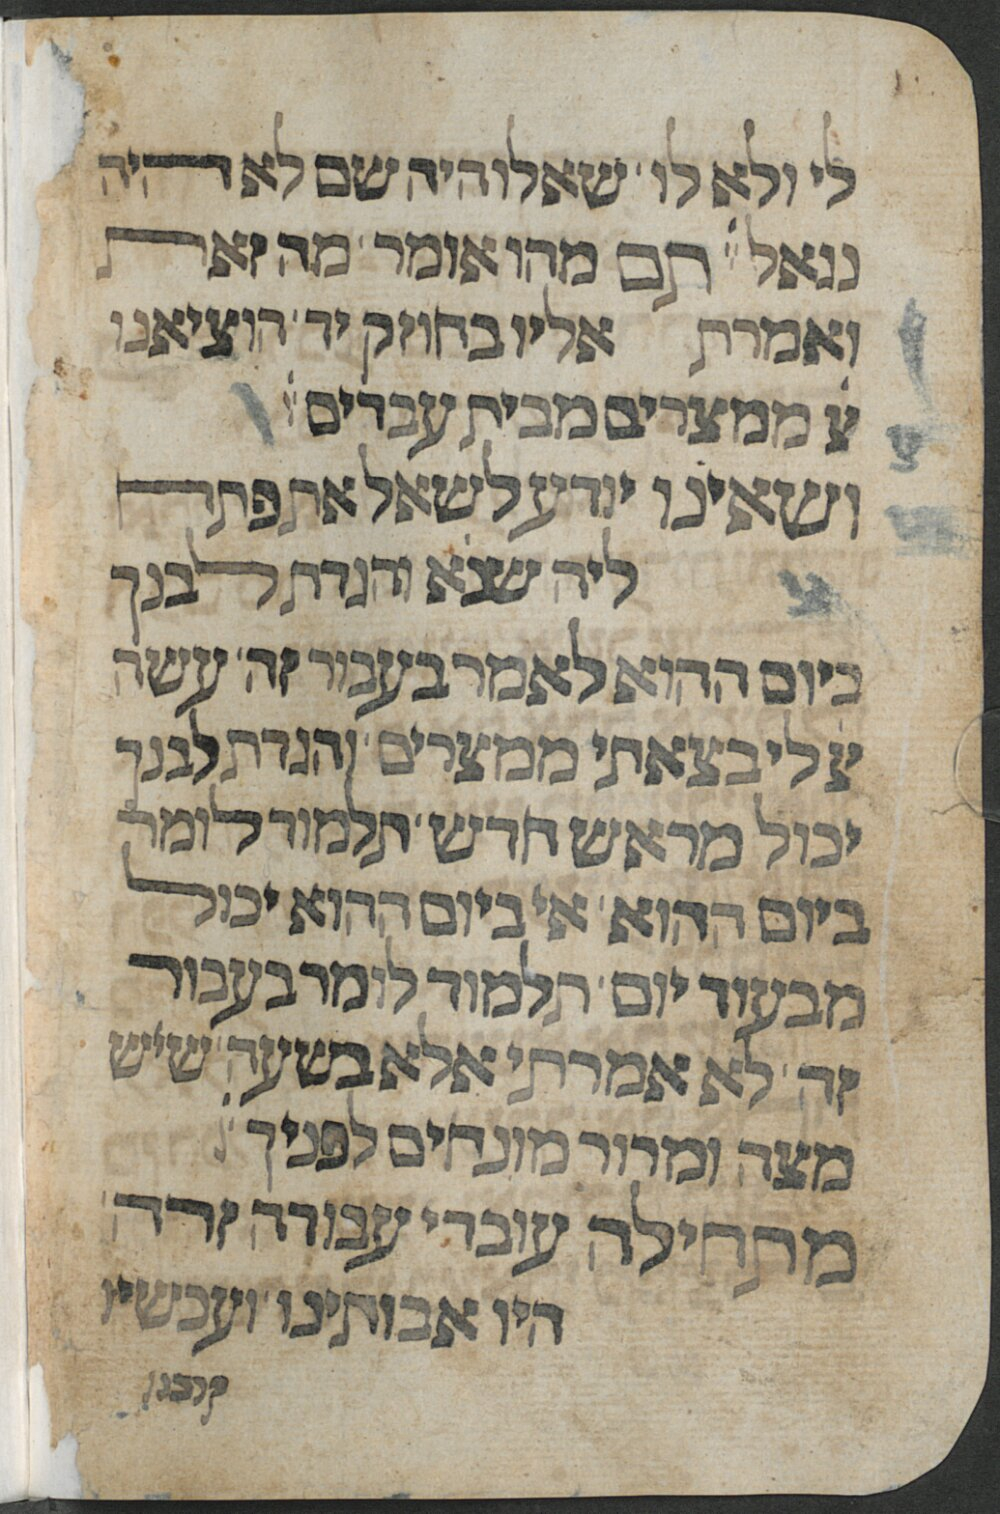 לי ולא לו שאלו היה שם לא היה
נגאל תם מהו אומר מה זאת
ואמרת אליו בחוזק יד הוציאנו
ממצרים מבית עבדים
ושאינו יודע לשאל את פתח
ליה שנא והגדת לבנך
ביום ההוא לאמר בעבור זה עשה
לי בצאתי ממצרים והגדת לבנך
יכול מראש חדש תלמוד לומר
ביום ההוא אי ביום ההוא יכול
מבעוד יום תלמוד לומר בעבור
זה לא אמרתי אלא בשעה שיש
מצה ומרור מונחים לפניך
מתחילה עובדי עבודה זרה
היו אבותינו ועכשיו
קרבנו